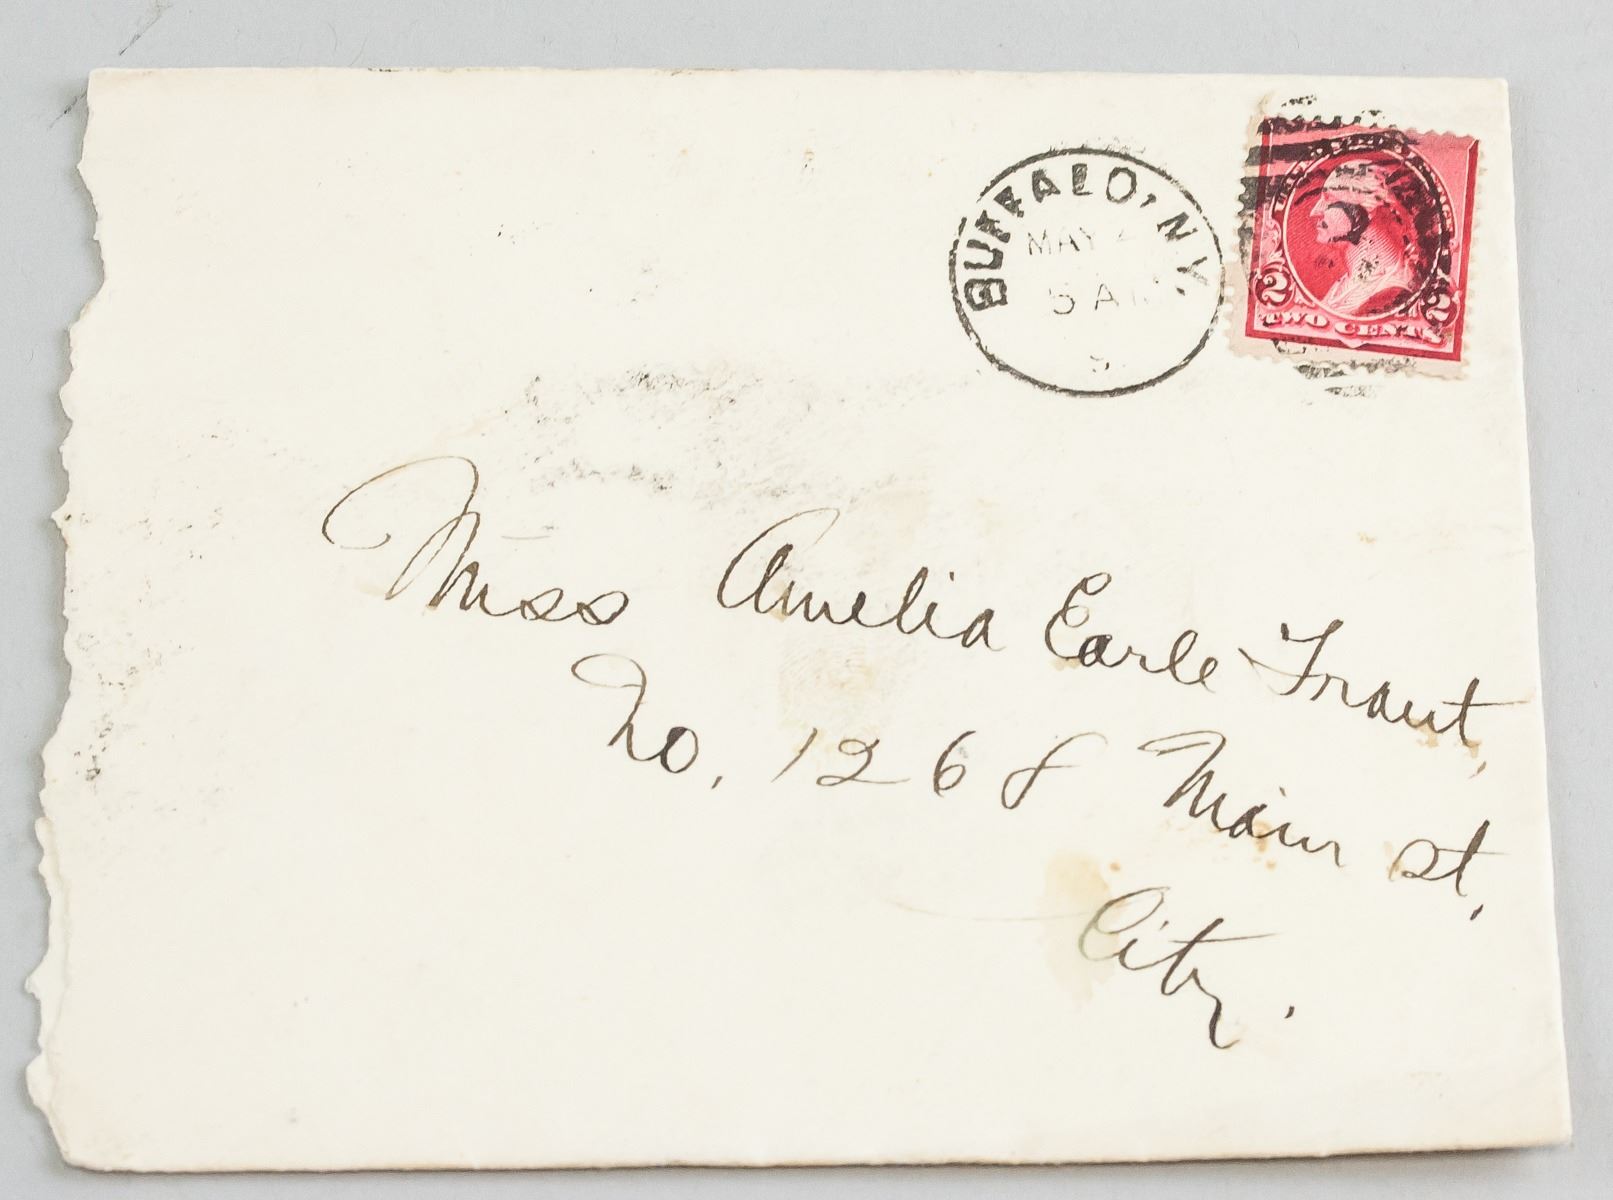 BUFFALO, N.Y.
MAY 4
5 AM
2
2 2
TWO CENTS
Miss Amelia Earle Traut,
No. 1268 Main St,
City.